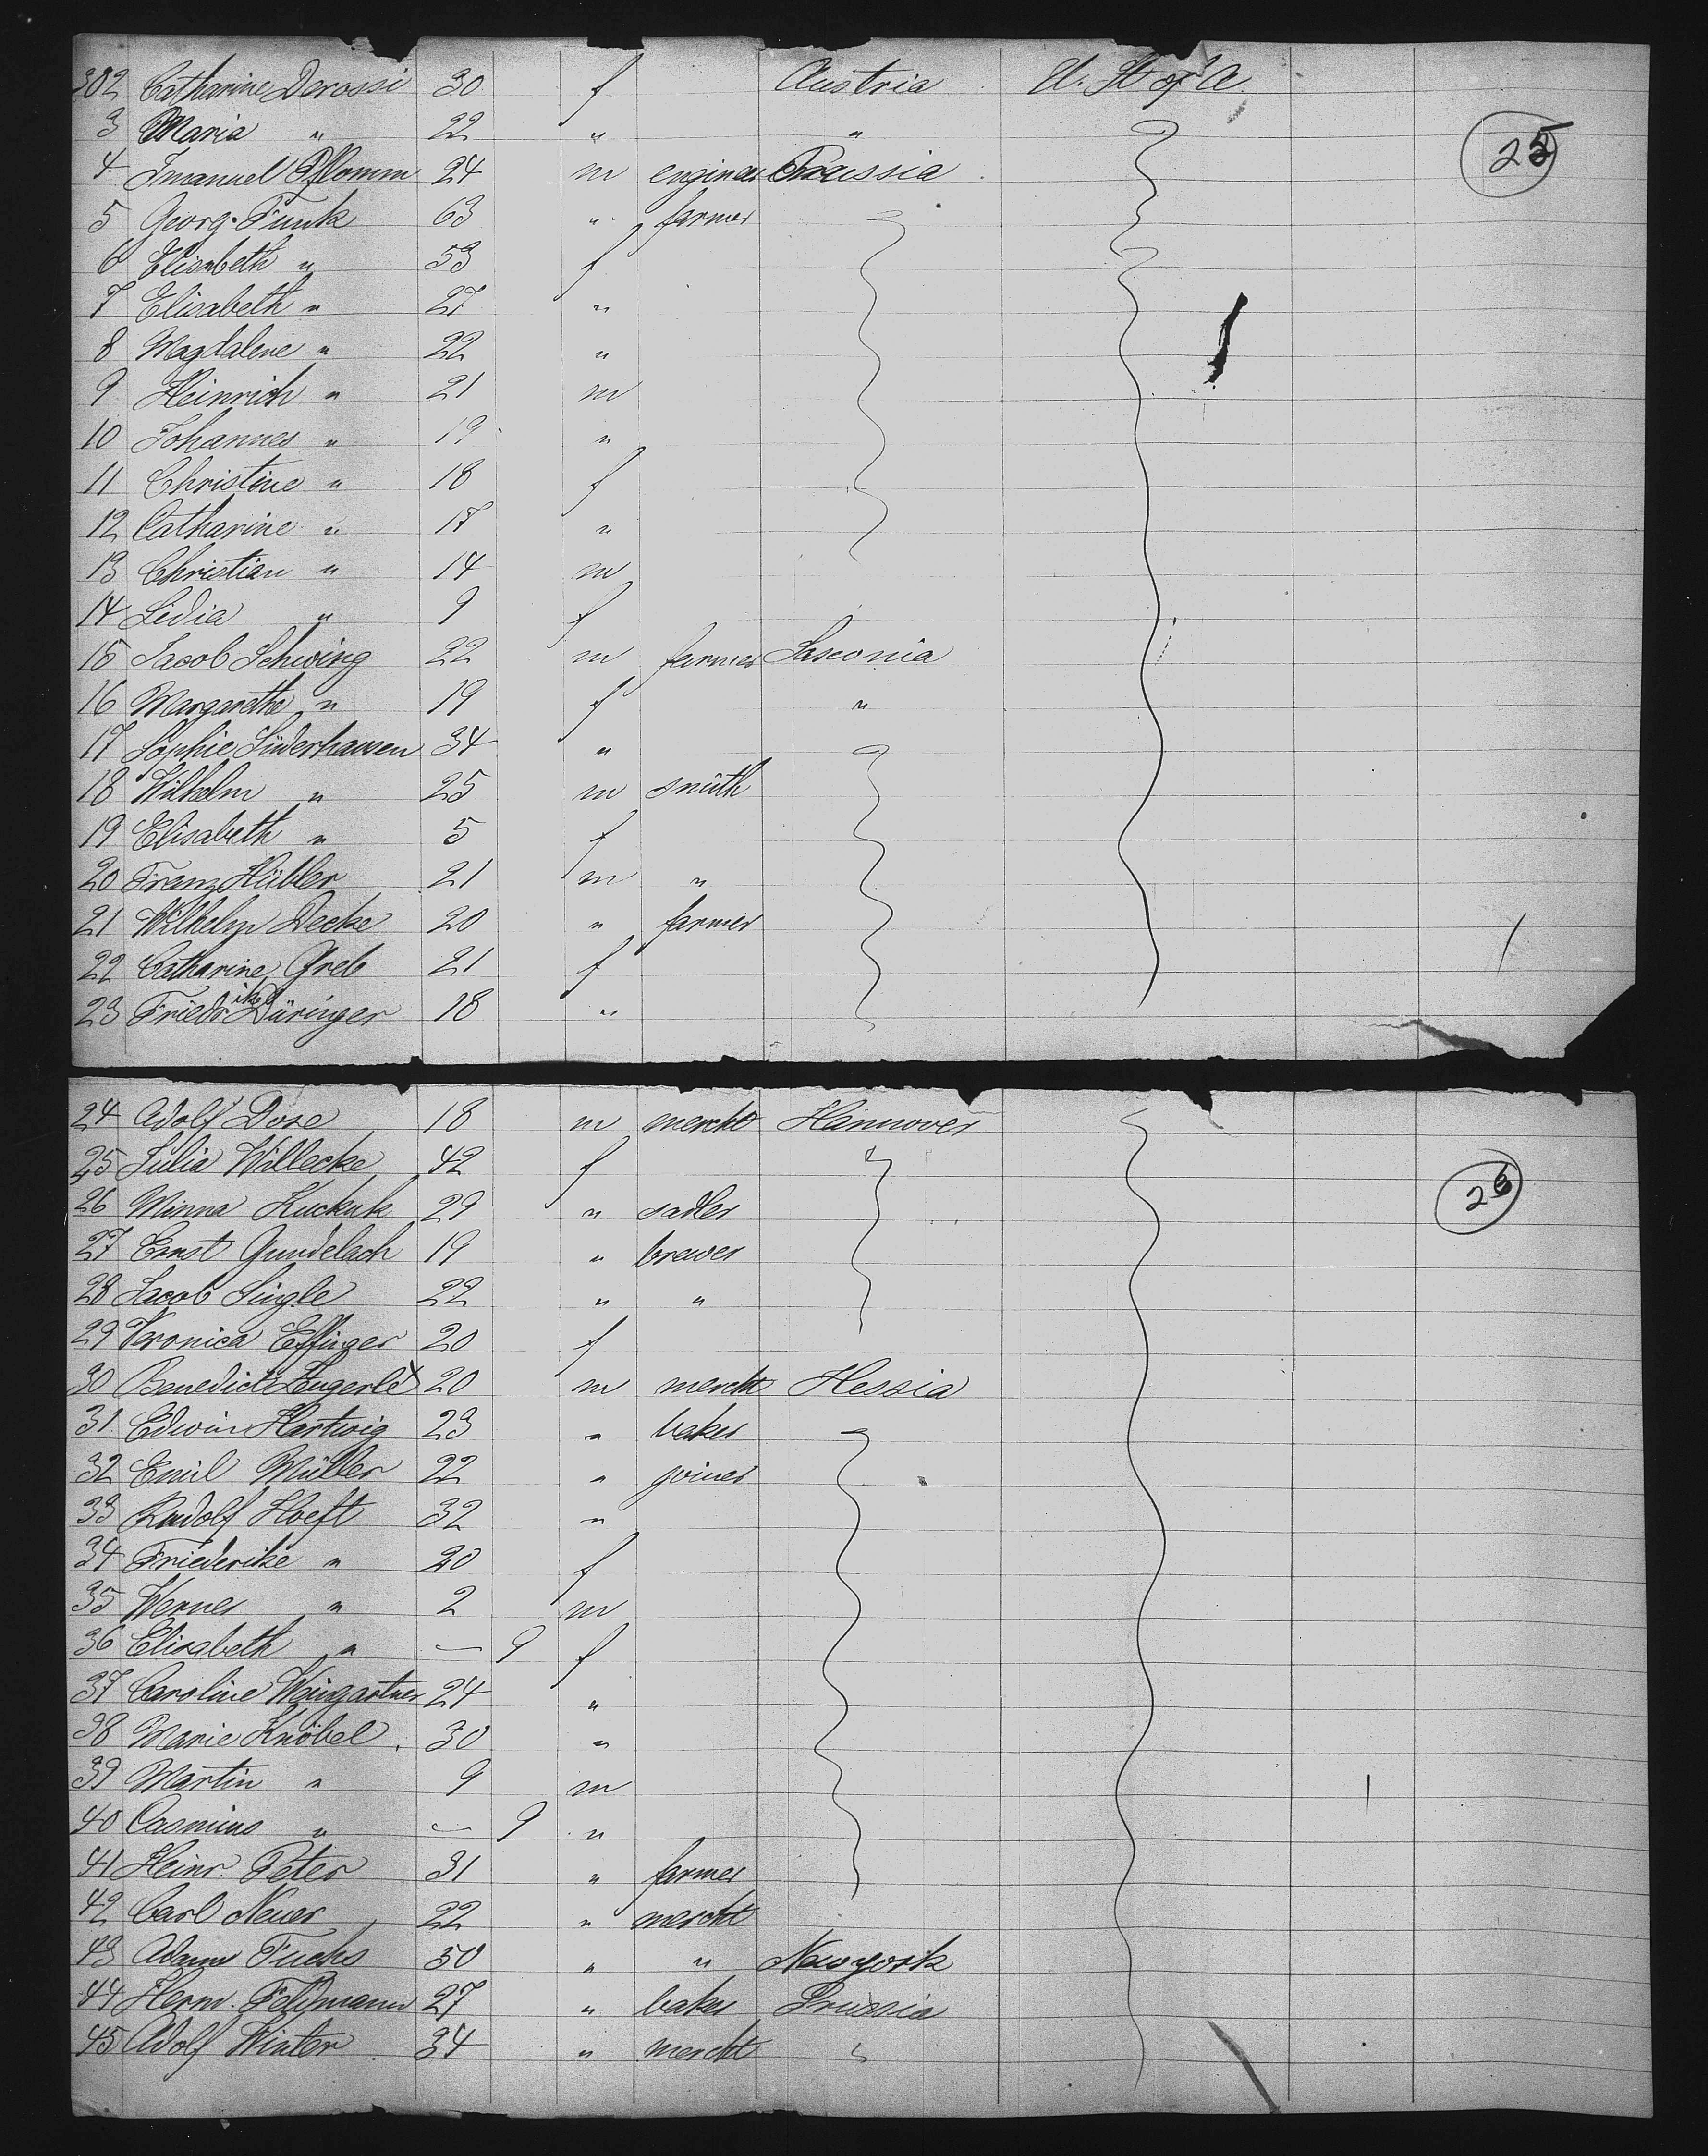 302 Catharine Derossi 30 f Austria U. St of A.
3 Maria " 22 " "
4 Imanuel Pflomm 24 m engineer Prussia
25
5 Georg Funk 63 " farmer
6 Elisabeth " 53 f
7 Elisabeth " 27 "
8 Magdalene " 22 "
9 Heinrich " 21 m
10 Johannes " 19 "
11 Christine " 18 f
12 Catharine " 17 "
13 Christian " 14 m
14 Lidia " 9 f
15 Jacob Schwing 22 m farmer Saxonia
16 Margarethe " 19 f "
17 Sophie Süderhausen 34 "
18 Wilhelm " 25 m smith
19 Elisabeth " 5 f
20 Franz Hübler 21 m "
21 Wilhelm Decke 20 " farmer
22 Catharine Greb 21 f
23 Friedrike Däringer 18 "
24 Adolf Dose 18 m mercht Hannover
25 Julia Willecke 42 f
26 Minna Kuckuk 29 " sadler
26
27 Ernst Gundelach 19 " brewer
28 Jacob Single 22 " "
29 Veronica Effinger 20 f
30 Benedict 20 m mercht Hessia
31 Edwin Hartwig 23 " baker
32 Emil Müller 22 " joiner
33 Rudolf Hoeft 32 "
34 Friederike " 20 f
35 Werner " 2 m
36 Elisabeth " — 9 f
37 Caroline Weingartner 24 "
38 Marie Knöbel 30 "
39 Martin " 9 m
40 " — 9 "
41 Heinr. Peter 31 " farmer
42 Carl Neuer 22 " mercht
43 Adam Fuchs 50 " " Newyork
44 Herm. Feldmann 27 " baker Prussia
45 Adolf Winter 34 " mercht "